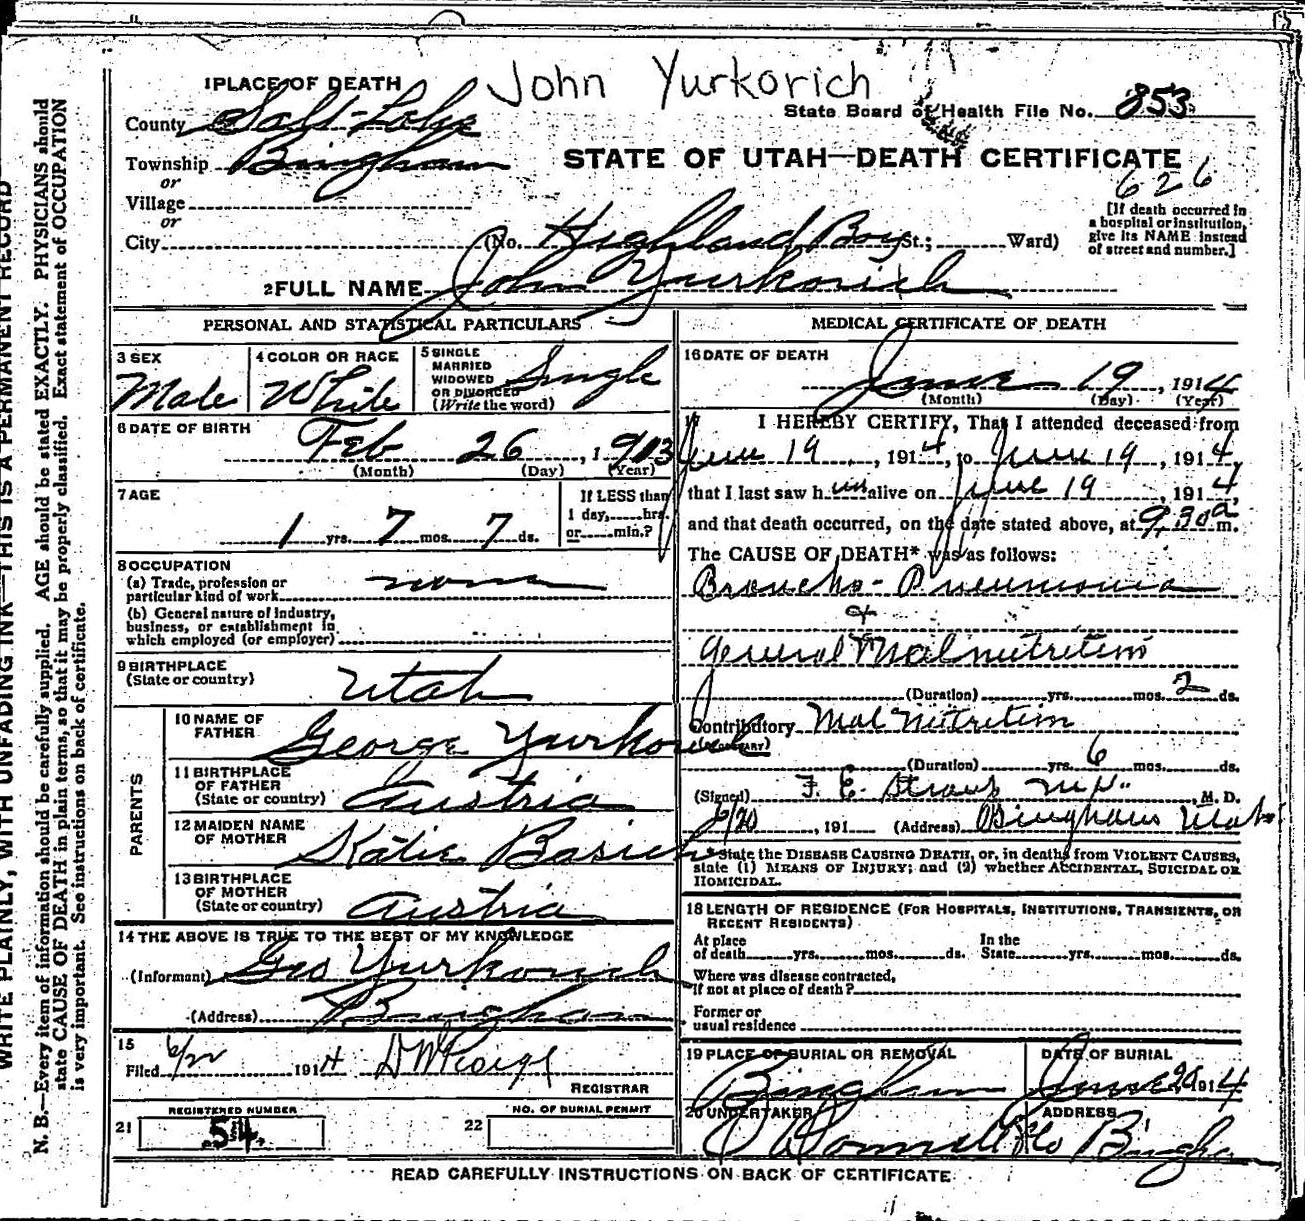 John Yurkorich
1 PLACE OF DEATH
State Board of Health File No. 853
County Salt Lake
Township Bingham
STATE OF UTAH—DEATH CERTIFICATE
626
or
Village
or
City (No. Highland Boy St.; Ward)
[If death occurred in
a hospital or institution,
give its NAME instead
of street and number.]
2 FULL NAME John Yurkovich
PERSONAL AND STATISTICAL PARTICULARS
3 SEX
Male
4 COLOR OR RACE
White
5 SINGLE
MARRIED
WIDOWED
OR DIVORCED
(Write the word)
Single
6 DATE OF BIRTH
Feb 26, 1913
(Month) (Day) (Year)
7 AGE
1 yrs. 7 mos. 7 ds.
If LESS than
1 day, hrs.
or min.?
8 OCCUPATION
(a) Trade, profession or
particular kind of work none
(b) General nature of industry,
business, or establishment in
which employed (or employer)
9 BIRTHPLACE
(State or country) Utah
PARENTS
10 NAME OF
FATHER George Yurkovich
11 BIRTHPLACE
OF FATHER
(State or country) Austria
12 MAIDEN NAME
OF MOTHER Katie Basich
13 BIRTHPLACE
OF MOTHER
(State or country) Austria
14 THE ABOVE IS TRUE TO THE BEST OF MY KNOWLEDGE
(Informant) Geo Yurkovich
(Address) Bingham
15
Filed 6/22 1914
REGISTRAR
21 REGISTERED NUMBER
54
22 NO. OF BURIAL PERMIT
MEDICAL CERTIFICATE OF DEATH
16 DATE OF DEATH
June 19, 1914
(Month) (Day) (Year)
I HEREBY CERTIFY, That I attended deceased from
June 19, 1914, to June 19, 1914,
that I last saw him alive on June 19, 1914,
and that death occurred, on the date stated above, at 9.30 a m.
The CAUSE OF DEATH* was as follows:
Broncho-Pneumonia
&
General Malnutrition
(Duration) yrs. mos. 2 ds.
Contributory Mal Nutrition
(SECONDARY)
(Duration) yrs. 6 mos. ds.
(Signed) F. E. Straup M.D., M. D.
6/20, 191 (Address) Bingham Utah
*State the DISEASE CAUSING DEATH, or, in deaths from VIOLENT CAUSES,
state (1) MEANS OF INJURY; and (2) whether ACCIDENTAL, SUICIDAL OR
HOMICIDAL.
18 LENGTH OF RESIDENCE (FOR HOSPITALS, INSTITUTIONS, TRANSIENTS, OR
RECENT RESIDENTS)
At place
of death yrs. mos. ds.
In the
State yrs. mos. ds.
Where was disease contracted,
if not at place of death?
Former or
usual residence
19 PLACE OF BURIAL OR REMOVAL
Bingham
DATE OF BURIAL
June 20 1914
20 UNDERTAKER
O'Donnell & Co
ADDRESS
Bingham
READ CAREFULLY INSTRUCTIONS ON BACK OF CERTIFICATE
WRITE PLAINLY, WITH UNFADING INK—THIS IS A PERMANENT RECORD
N. B.—Every item of information should be carefully supplied. AGE should be stated EXACTLY. PHYSICIANS should
state CAUSE OF DEATH in plain terms, so that it may be properly classified. Exact statement of OCCUPATION
is very important. See instructions on back of certificate.